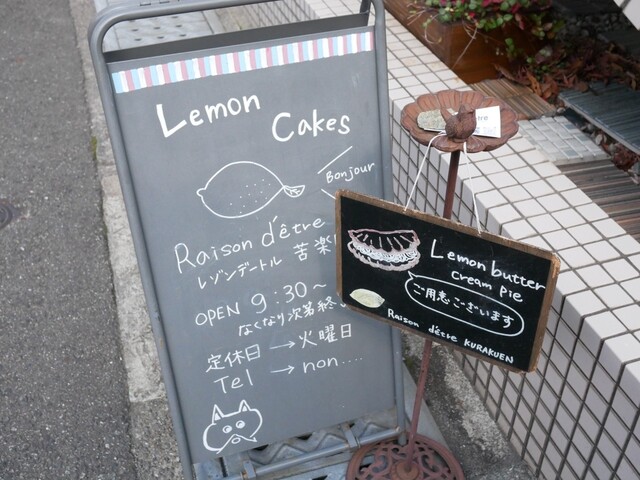 Lemon
Cakes
Bonjour
Raison d'être
レゾンデートル 苦楽
OPEN 9:30〜
なくなり次第終
定休日 → 火曜日
Tel → non....
Lemon butter
cream pie
ご用意ございます
Raison d'être KURAKUEN